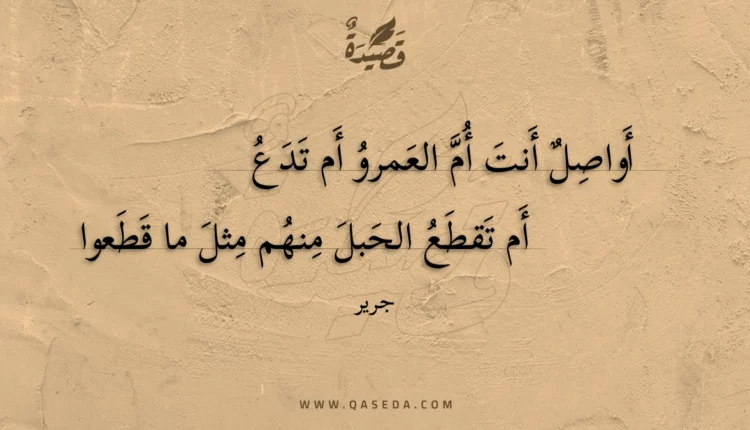 قَصِيدَةٌ
أَواصِلٌ أَنتَ أُمَّ العَمروُ أَم تَدَعُ
أَم تَقطَعُ الحَبلَ مِنهُم مِثلَ ما قَطَعوا
جرير
WWW.QASEDA.COM